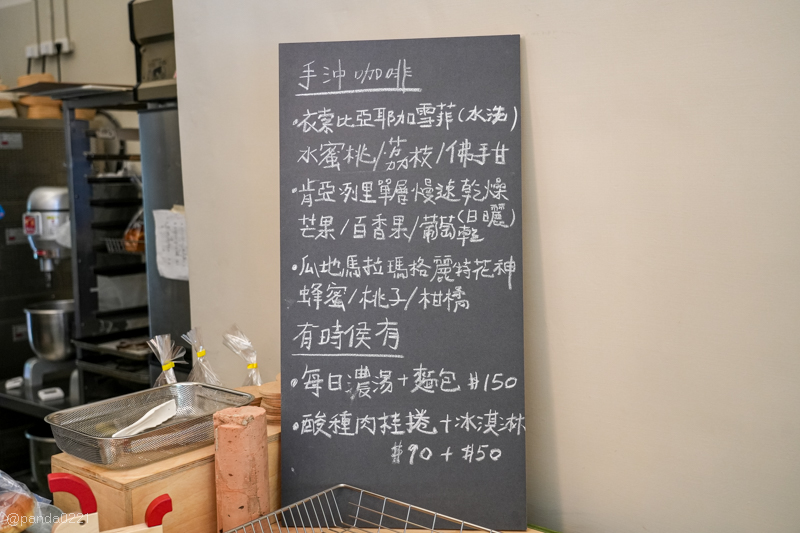 手沖咖啡
•衣索比亞耶加雪菲(水洗)
水蜜桃/荔枝/佛手柑
•肯亞冽里單層慢速乾燥
芒果/百香果/葡萄(日曬乾)
•瓜地馬拉瑪格麗特花神
蜂蜜/桃子/柑橘
有時侯有
•每日濃湯+麵包 $150
•酸種肉桂捲+冰淇淋
$90+$50
@panda0221